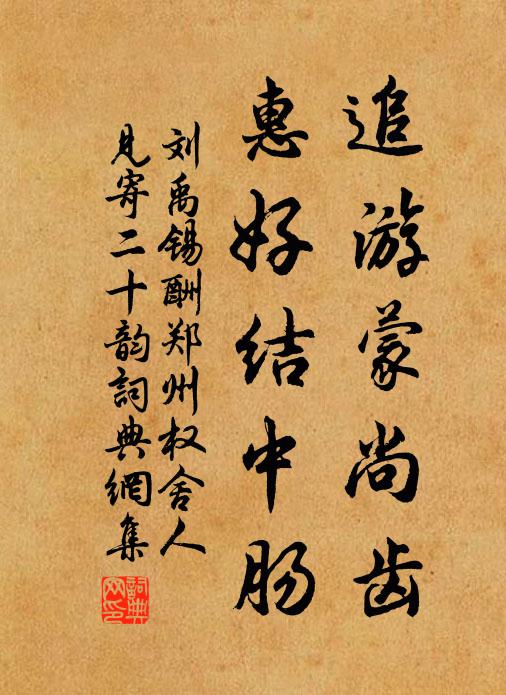 追游蒙尚齿
惠好结中肠
刘禹锡酬郑州权舍人
见寄二十韵词典網集
詞典
网印